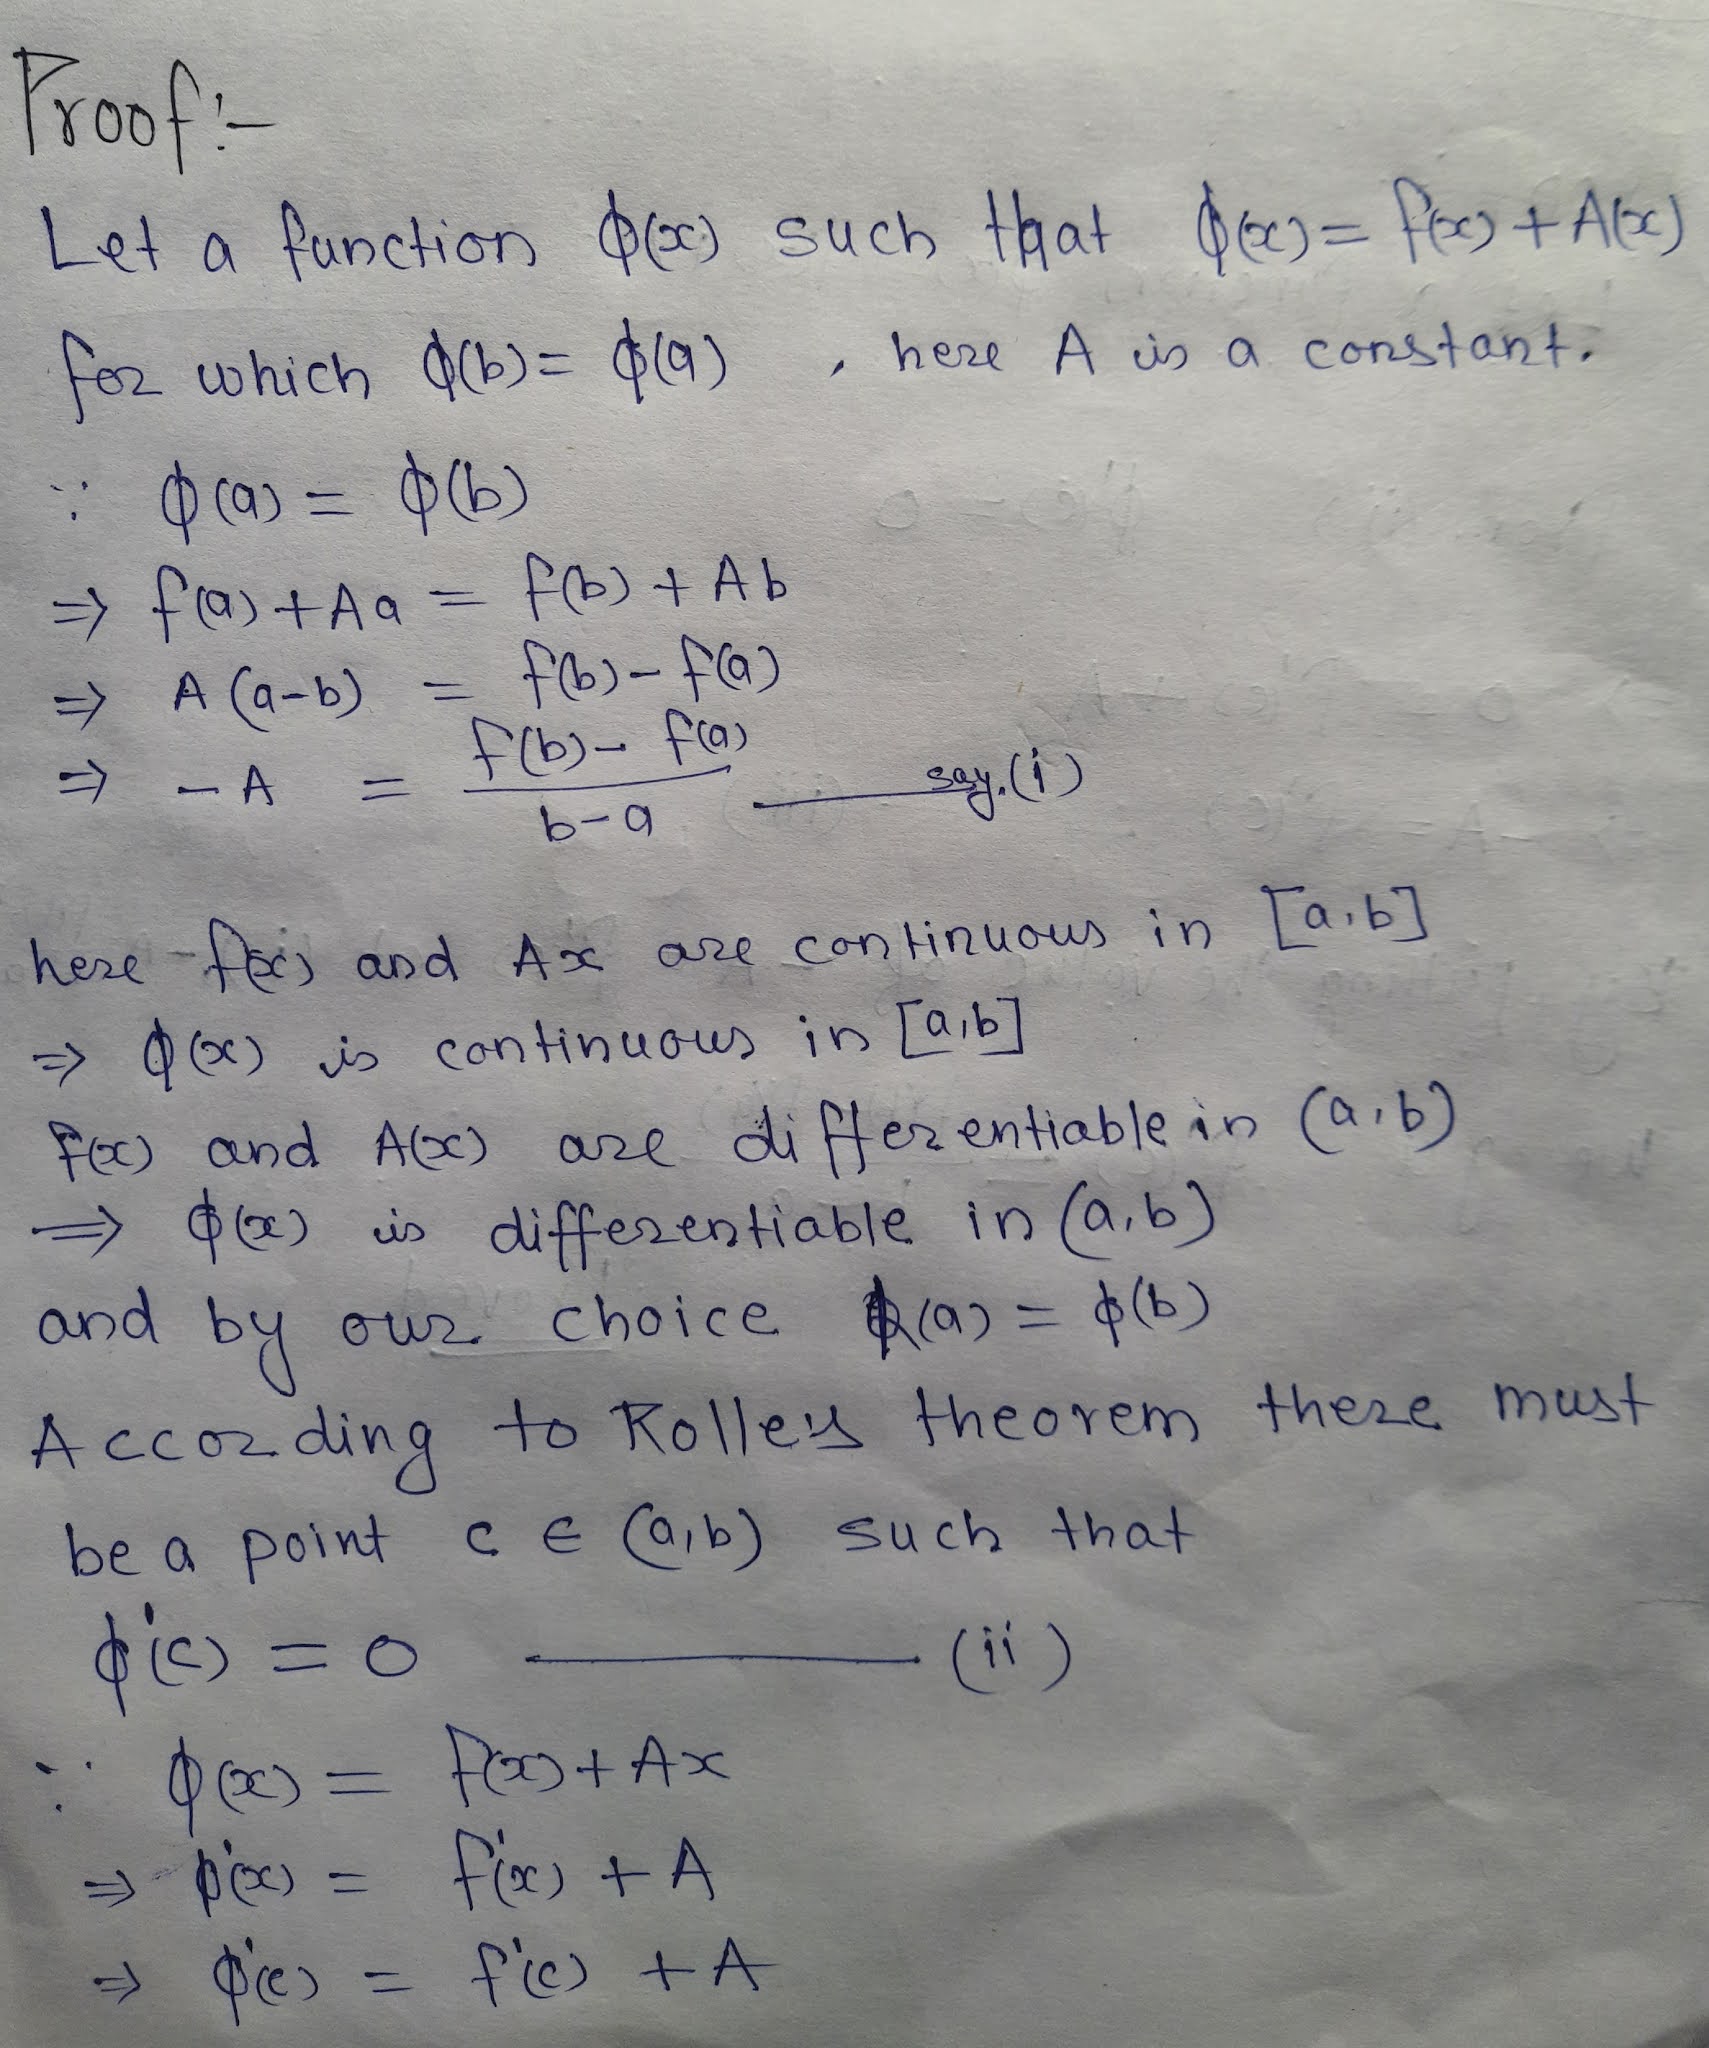 Proof:-
Let a function ϕ(x) such that ϕ(x) = f(x) + A(x)
for which ϕ(b) = ϕ(a) , here A is a constant.
∵ ϕ(a) = ϕ(b)
⇒ f(a) + Aa = f(b) + Ab
⇒ A(a-b) = f(b) - f(a)
⇒ -A = \frac{f(b) - f(a)}{b-a} ——— say.(i)
here f(x) and Ax are continuous in [a,b]
⇒ ϕ(x) is continuous in [a,b]
f(x) and A(x) are differentiable in (a,b)
⇒ ϕ(x) is differentiable in (a,b)
and by our choice ϕ(a) = ϕ(b)
According to Rolle's theorem there must
be a point c ∈ (a,b) such that
ϕ'(c) = 0 ——— (ii)
∵ ϕ(x) = f(x) + Ax
⇒ ϕ'(x) = f'(x) + A
⇒ ϕ'(c) = f'(c) + A